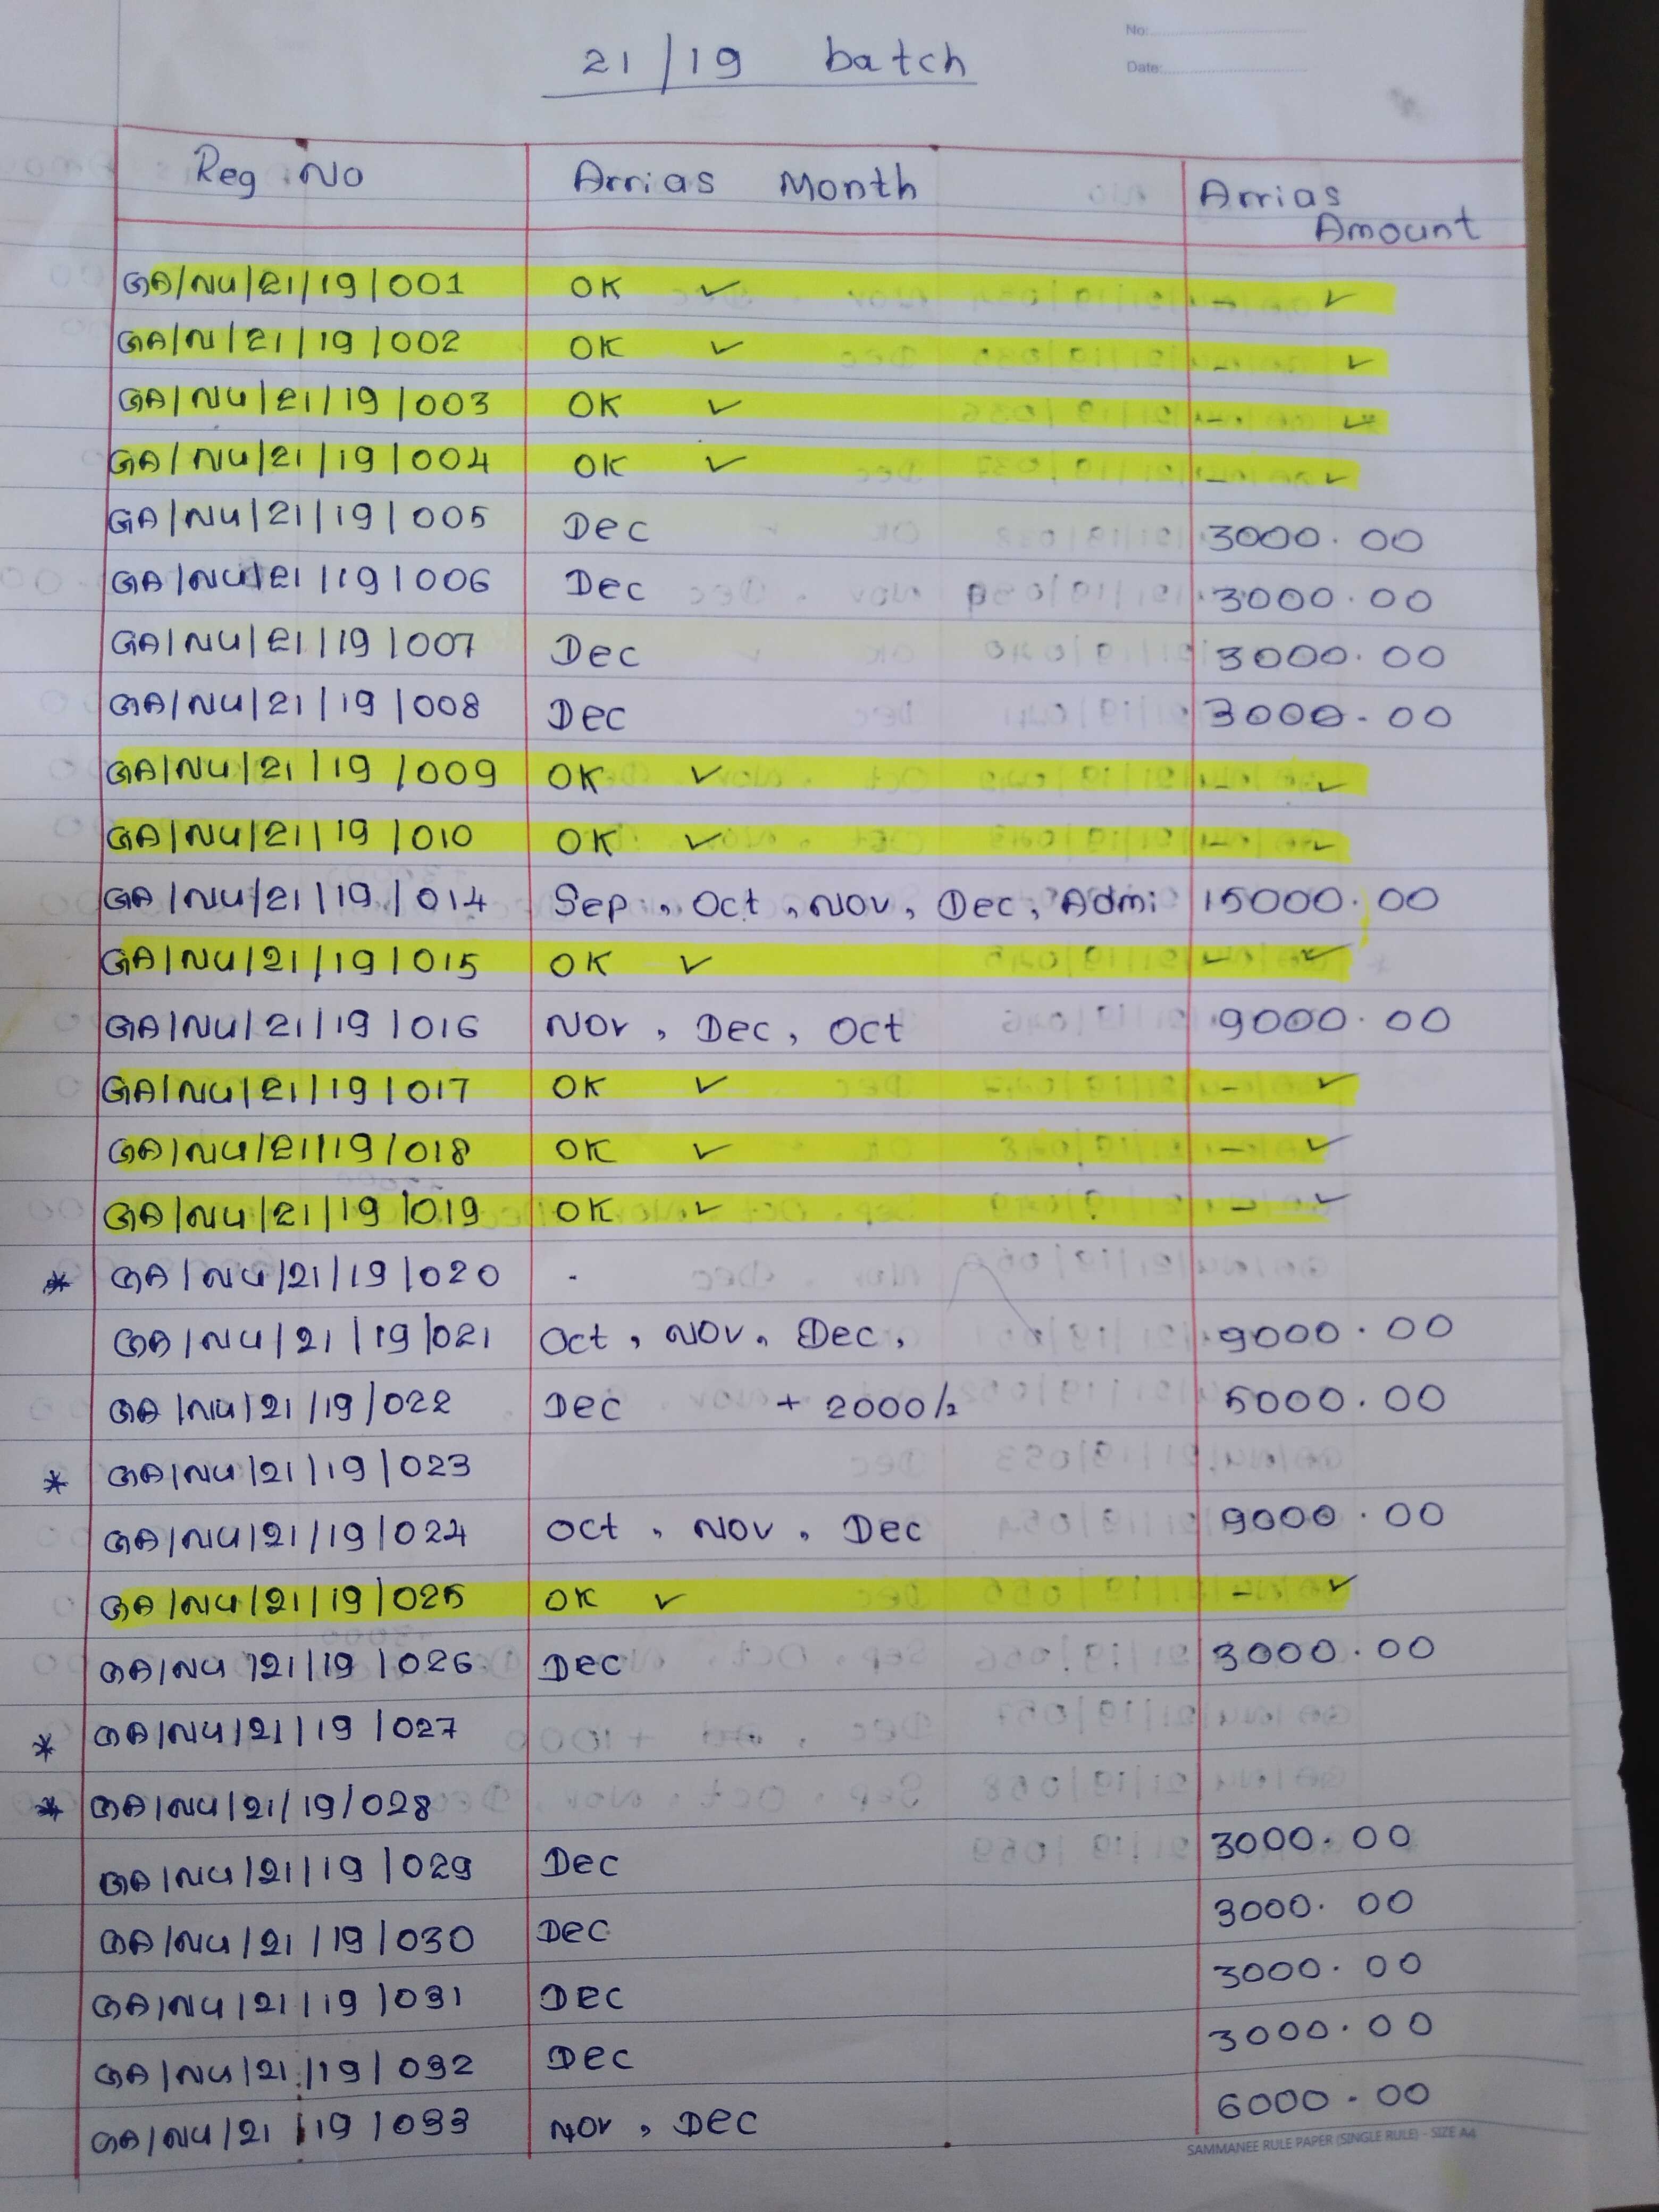 No:
Date:
21/19 batch
Reg No Arrias Month Arrias Amount
GA/NU/21/19/001 OK ✓ - ✓
GA/N/21/19/002 OK ✓ - ✓
GA/NU/21/19/003 OK ✓ - ✓
GA/NU/21/19/004 OK ✓ - ✓
GA/NU/21/19/005 Dec 3000.00
GA/NU/21/19/006 Dec 3000.00
GA/NU/21/19/007 Dec 3000.00
GA/NU/21/19/008 Dec 3000.00
GA/NU/21/19/009 OK ✓ - ✓
GA/NU/21/19/010 OK ✓ - ✓
GA/NU/21/19/014 Sep, Oct, Nov, Dec, Admi 15000.00
GA/NU/21/19/015 OK ✓ - ✓
GA/NU/21/19/016 Nov, Dec, Oct 9000.00
GA/NU/21/19/017 OK ✓ - ✓
GA/NU/21/19/018 OK ✓ - ✓
GA/NU/21/19/019 OK ✓ - ✓
* GA/NU/21/19/020 -
GA/NU/21/19/021 Oct, Nov, Dec, 9000.00
GA/NU/21/19/022 Dec + 2000/= 5000.00
* GA/NU/21/19/023
GA/NU/21/19/024 Oct, Nov, Dec 9000.00
GA/NU/21/19/025 OK ✓ - ✓
GA/NU/21/19/026 Dec 3000.00
* GA/NU/21/19/027
* GA/NU/21/19/028
GA/NU/21/19/029 Dec 3000.00
GA/NU/21/19/030 Dec 3000.00
GA/NU/21/19/031 Dec 3000.00
GA/NU/21/19/032 Dec 3000.00
GA/NU/21/19/033 Nov, Dec 6000.00
SAMMANEE RULE PAPER (SINGLE RULE) - SIZE A4